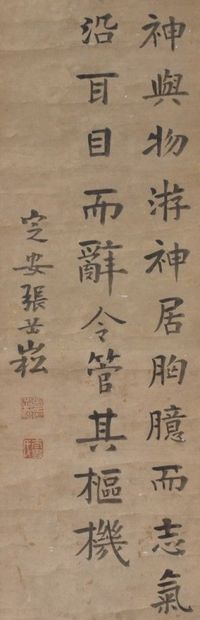 神與物游神居胸臆而志氣
沿耳目而辭令管其樞機
定安張岳崧